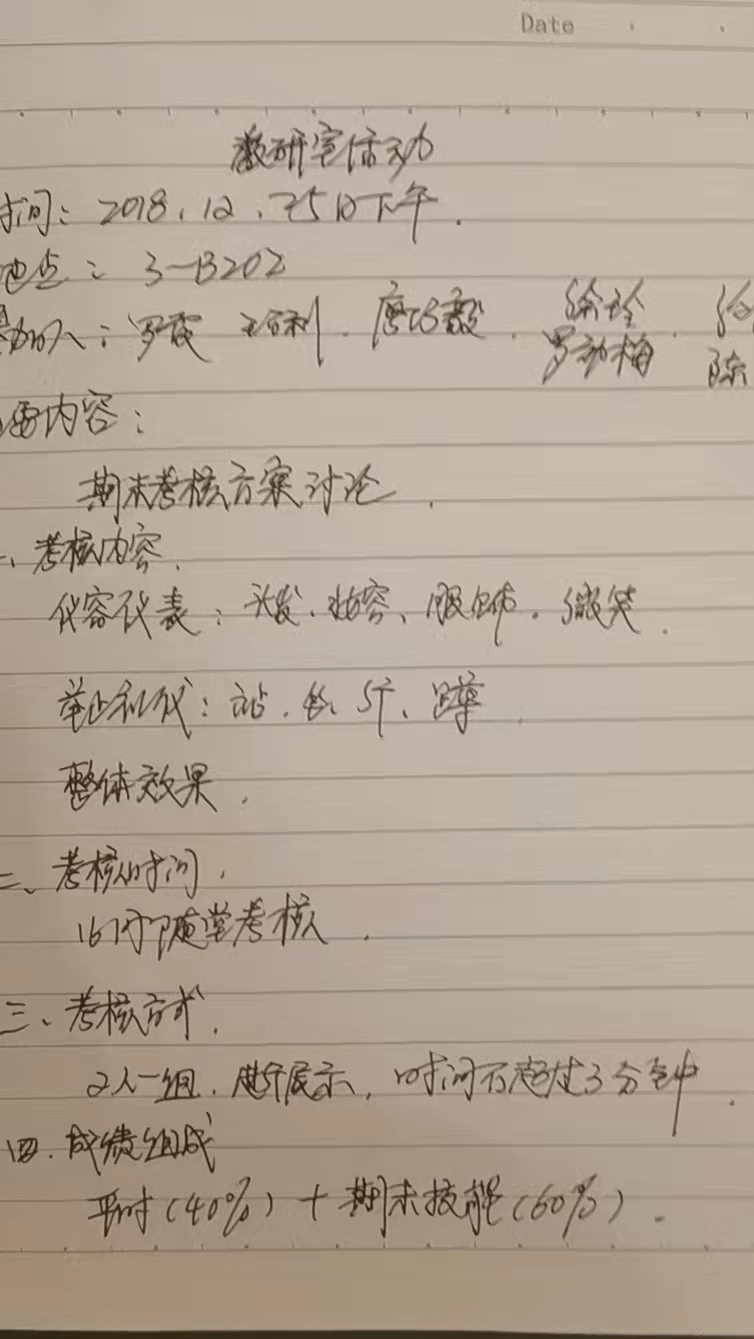 Date
教研室活动
时间：2018.12.25日下午.
地点：3-B202
参加人：罗霞 . 唐 . 徐玲 .
罗动梅 陈
要内容：
期末考核方案讨论.
一、考核内容.
仪容仪表：头发.妆容、服饰.微笑.
举止礼仪：站.坐.行、蹲.
整体效果.
二、考核时间.
16周随堂考核.
三、考核方式.
2人一组.进行展示,时间不超过3分钟.
四.成绩组成
平时(40%)+期末技能(60%).